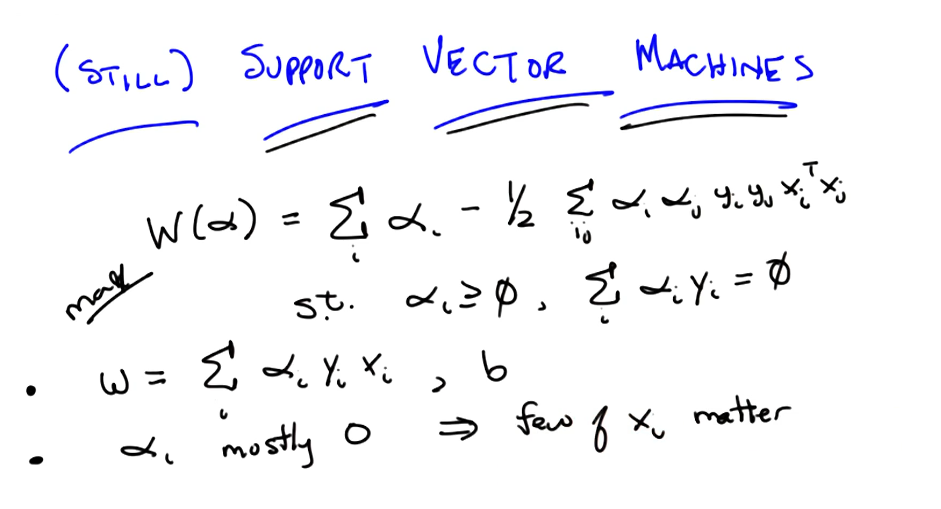 (STILL) SUPPORT VECTOR MACHINES
max W(α) = Σ_i α_i - 1/2 Σ_ij α_i α_j y_i y_j x_i^T x_j
s.t. α_i ≥ ∅, Σ_i α_i y_i = ∅
• w = Σ_i α_i y_i x_i , b
• α_i mostly 0 ⇒ few of x_i matter